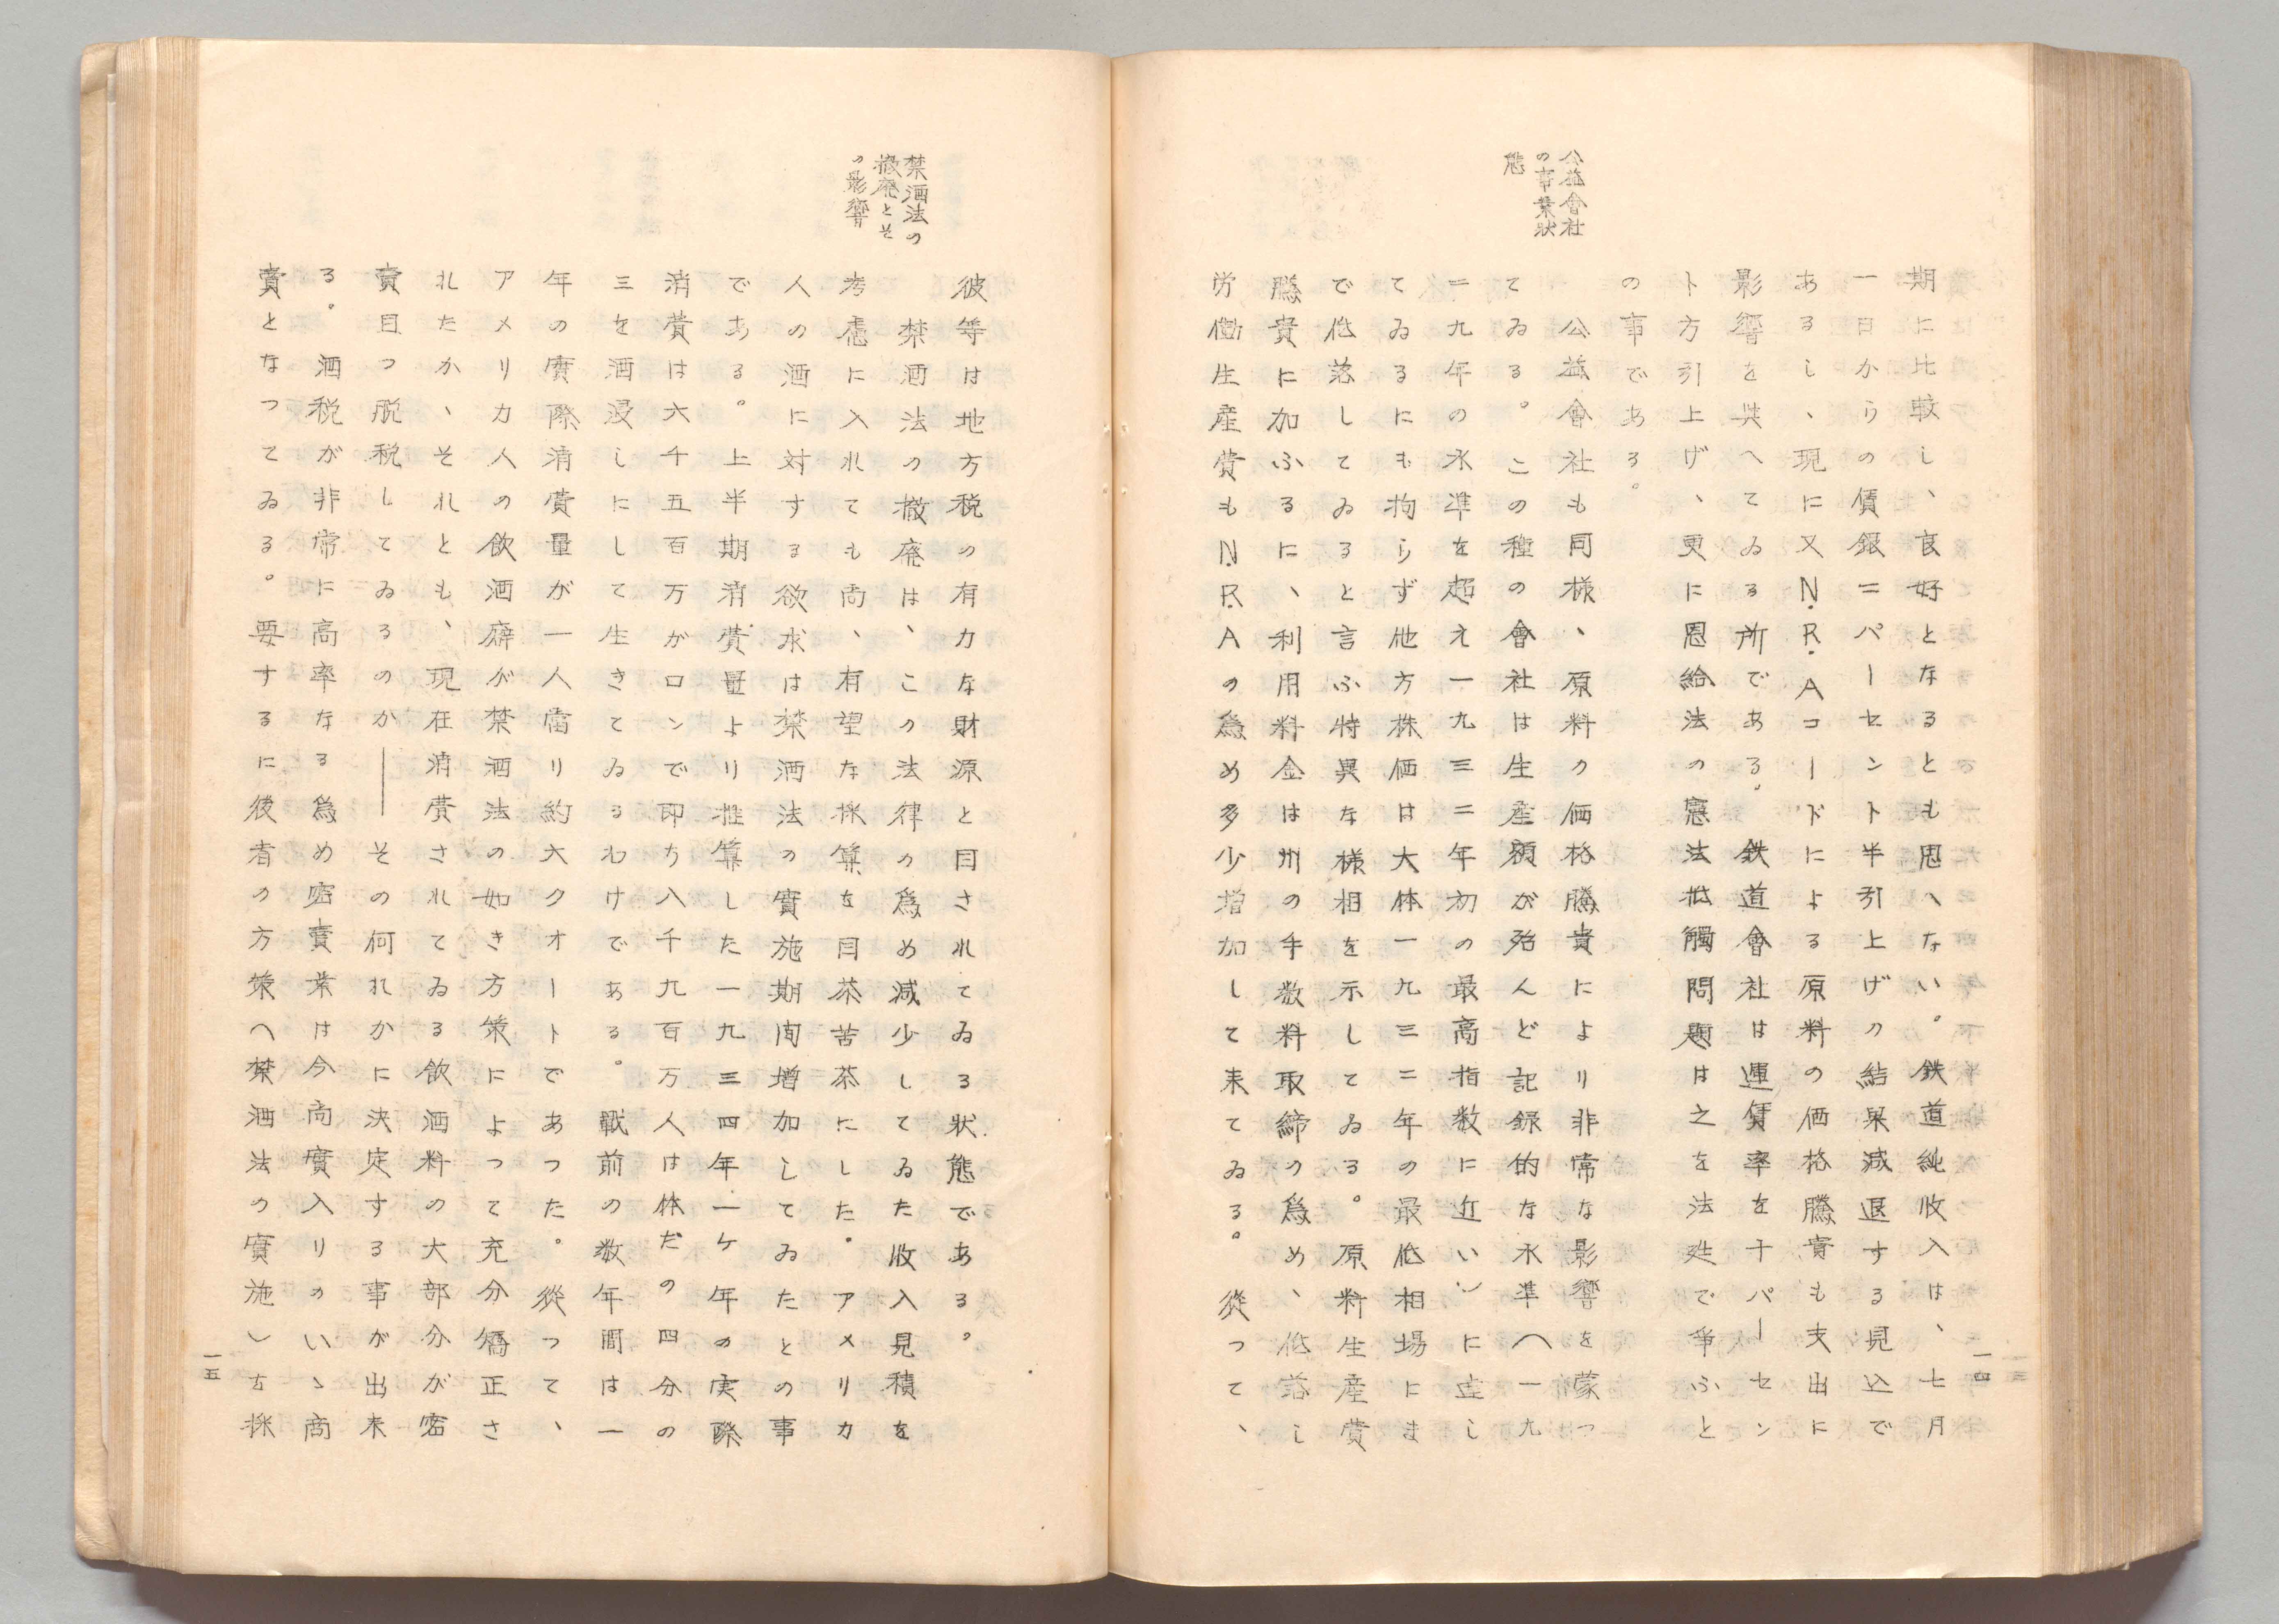 期に比較し、良好となるとも思へない。鉄道純收入は、七月
一日からの賃銀二パーセント半引上げの結果減退する見込で
あるし、現に又N.R.Aコードによる原料の価格騰貴も支出に
影響を與へてゐる所である。鉄道會社は運賃率を十パーセン
ト方引上げ、更に恩給法の憲法抵觸問題は之を法廷で爭ふと
の事である。
公益會社
の事業狀
態
公益會社も同様、原料の価格騰貴により非常な影響を蒙つ
てゐる。この種の會社は生産額が殆んど記録的な水準(一九
二九年の水準を超え一九三二年初の最高指数に近い)に達し
てゐるにも拘らず他方株価は大体一九三二年の最低相場にま
で低落してゐると言ふ特異な様相を示してゐる。原料生産費
騰貴に加ふるに、利用料金は州の手数料取締の爲め、低落し
労働生産費もN.R.Aの爲め多少増加して来てゐる。從つて、
一四
彼等は地方税の有力な財源と目されてゐる狀態である。
禁酒法の
撤廃とそ
の影響
禁酒法の撤廃は、この法律の爲め減少してゐた收入見積を
考慮に入れても尚、有望な採算を目茶苦茶にした。アメリカ
人の酒に対する欲求は禁酒法の實施期間増加してゐたとの事
である。上半期消費量より推算した一九三四年一ヶ年の実際
消費は六千五百万ガロンで即ち八千九百万人は体だの四分の
三を酒浸しにして生きてゐるわけである。戰前の数年間は一
年の實際消費量が一人當り約大クオートであつた。從つて、
アメリカ人の飲酒癖が禁酒法の如き方策によつて充分矯正さ
れたか、それとも、現在消費されてゐる飲酒料の大部分が密
賣且つ脱税してゐるのか――その何れかに決定する事が出来
る。酒税が非常に高率なる爲め密賣業は今尚實入りのいゝ商
賣となつてゐる。要するに後者の方策(禁酒法の實施)を採
一五